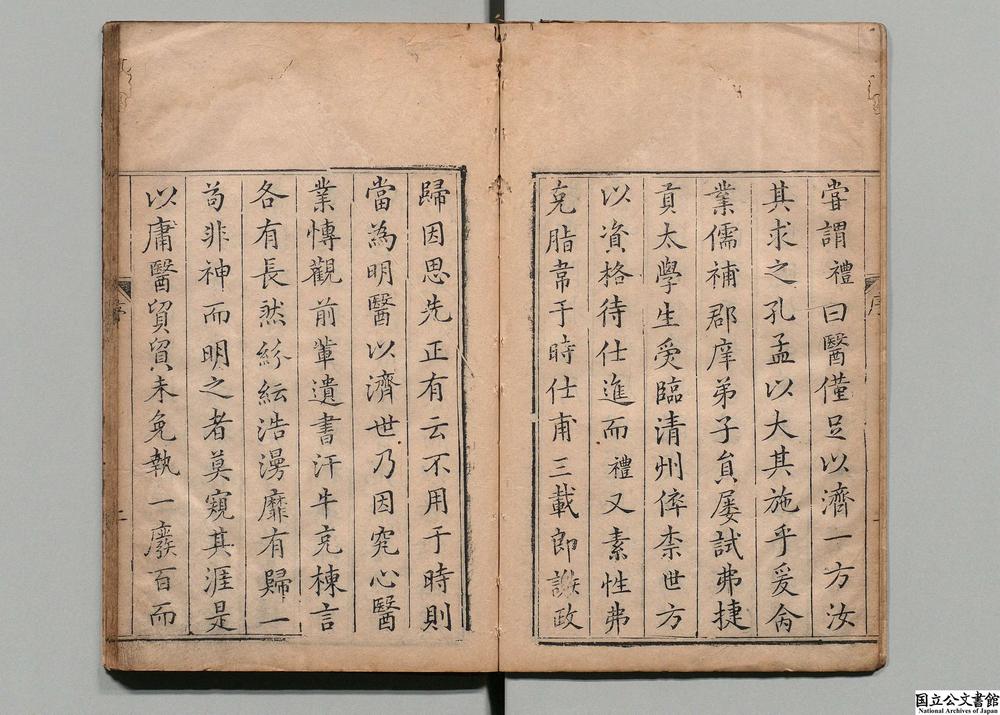 嘗謂禮曰醫僅足以濟一方汝
其求之孔孟以大其施乎爰舍
業儒補郡庠弟子員屢試弗捷
貢太學生受臨清州倅柰世方
以資格待仕進而禮又素性弗
克脂韋于時仕甫三載即謝政
歸因思先正有云不用于時則
當為明醫以濟世乃因究心醫
業慱觀前軰遺書汗牛充棟言
各有長然紛紜浩漫靡有歸一
苟非神而明之者莫窺其涯是
以庸醫貿貿未免執一廢百而
序
二
国立公文書館
National Archives of Japan